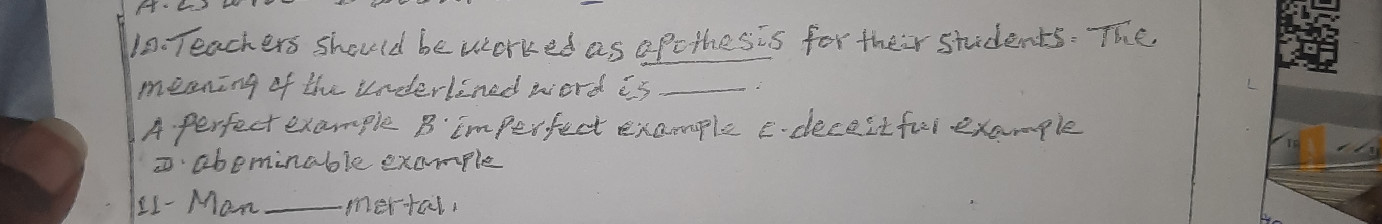 10. Teachers should be worked as apothesis for their students. The
meaning of the underlined word is ____.
A perfect example B. imperfect example C. deceitful example
D. abominable example
11- Man ____ mortal.